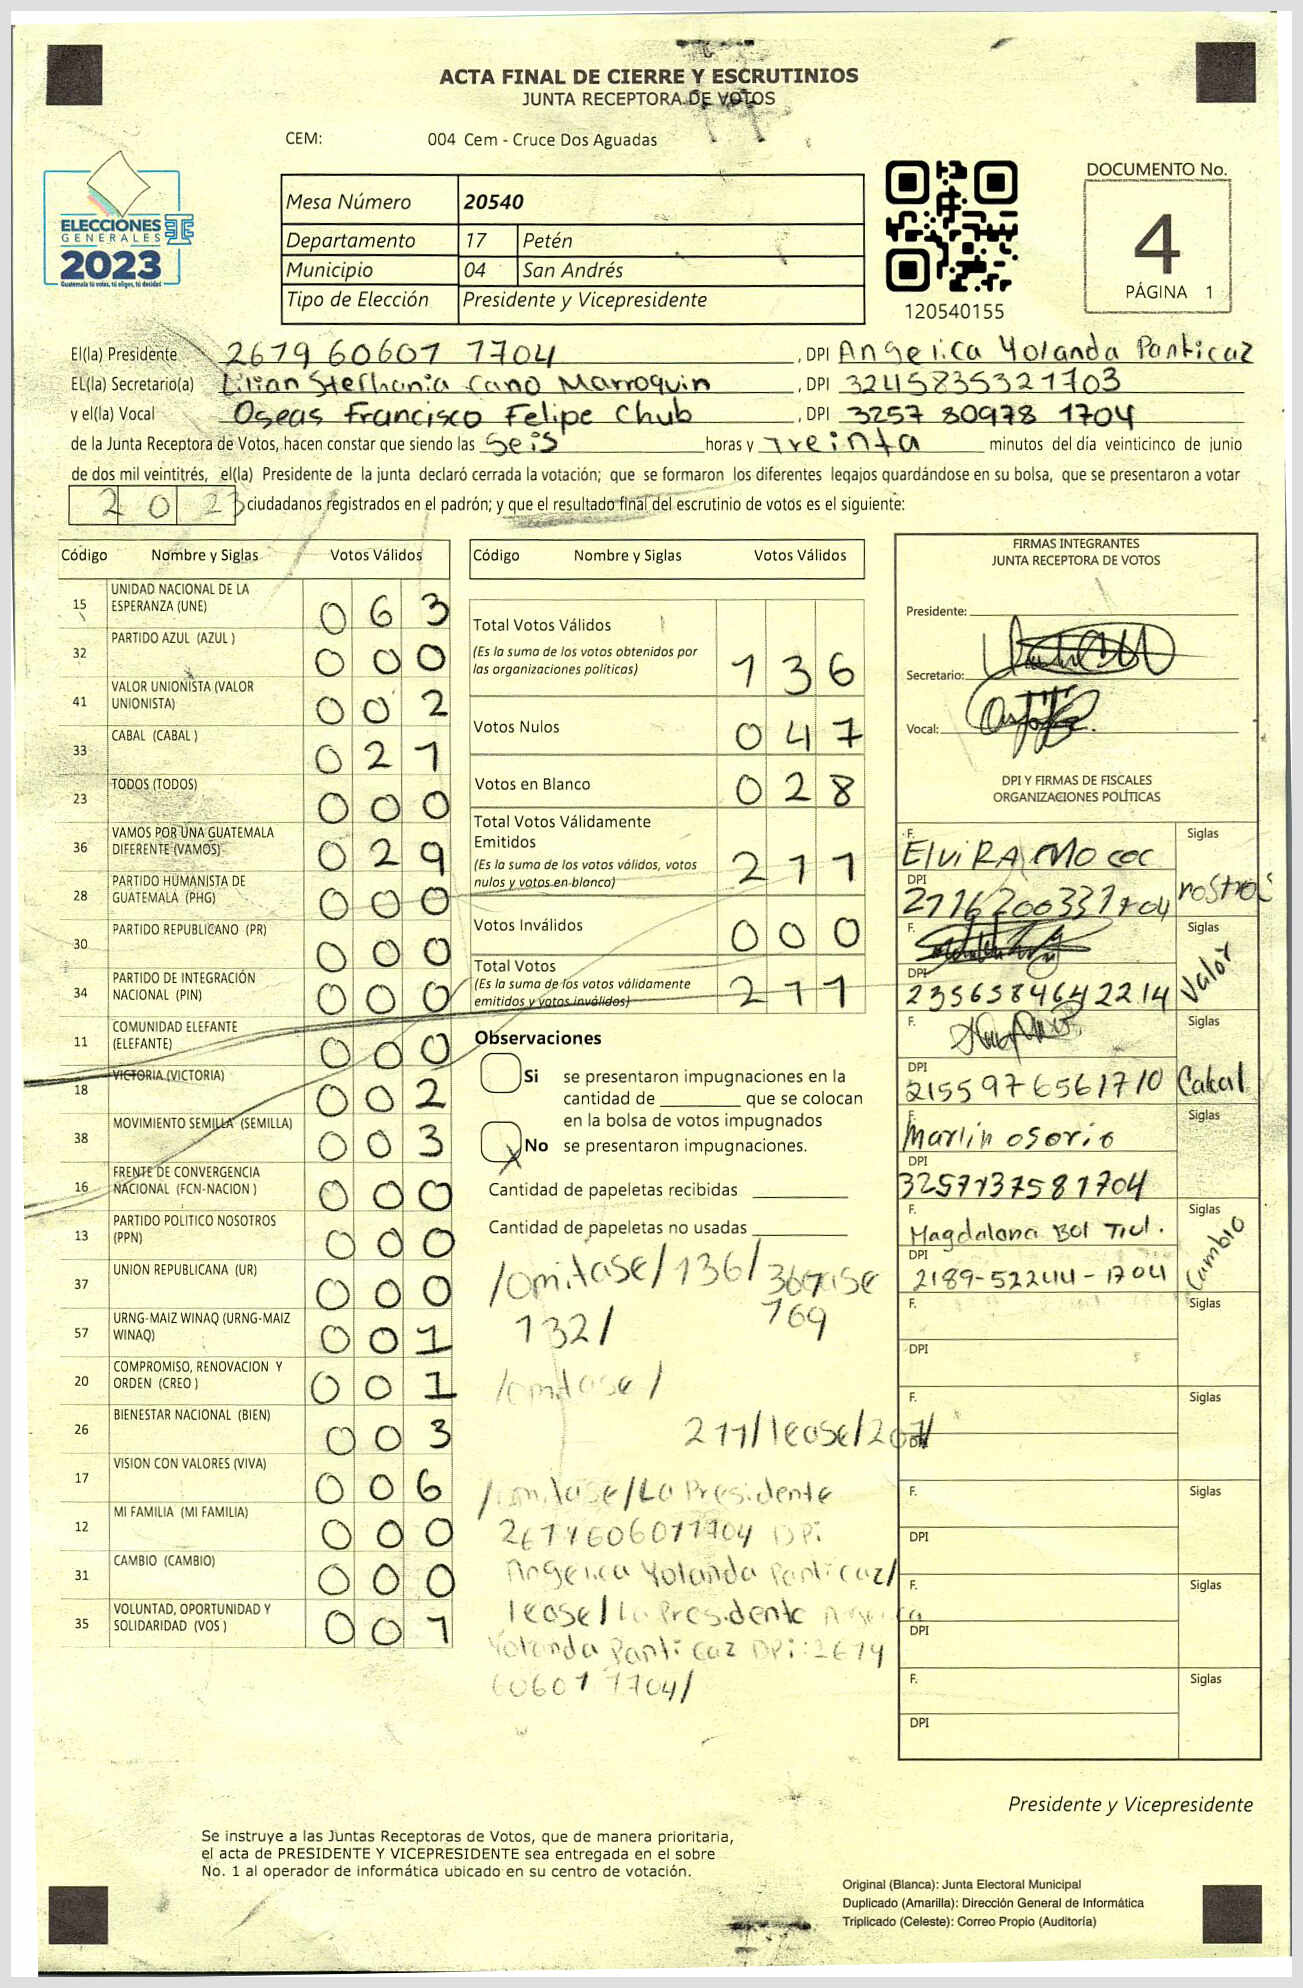 ACTA FINAL DE CIERRE Y ESCRUTINIOS
JUNTA RECEPTORA DE VOTOS
CEM: 004 Cem - Cruce Dos Aguadas
ELECCIONES
GENERALES
2023
Guatemala tú votas, tú eliges, tú decides
Mesa Número 20540
Departamento 17 Petén
Municipio 04 San Andrés
Tipo de Elección Presidente y Vicepresidente
120540155
DOCUMENTO No.
4
PÁGINA 1
El(la) Presidente 2679 60601 1704, DPI Angelica Yolanda Panticaz
EL(la) Secretario(a) Lilian Stephania Cano Marroquin, DPI 3245835321703
y el(la) Vocal Oseas Francisco Felipe Chub, DPI 3257 80978 1704
de la Junta Receptora de Votos, hacen constar que siendo las Seis horas y Treinta minutos del día veinticinco de junio
de dos mil veintitrés, el(la) Presidente de la junta declaró cerrada la votación; que se formaron los diferentes legajos guardándose en su bolsa, que se presentaron a votar
2 0 23 ciudadanos registrados en el padrón; y que el resultado final del escrutinio de votos es el siguiente:
Código Nombre y Siglas Votos Válidos
15 UNIDAD NACIONAL DE LA ESPERANZA (UNE) 0 6 3
32 PARTIDO AZUL (AZUL ) 0 0 0
41 VALOR UNIONISTA (VALOR UNIONISTA) 0 0 2
33 CABAL (CABAL ) 0 2 1
23 TODOS (TODOS) 0 0 0
36 VAMOS POR UNA GUATEMALA DIFERENTE (VAMOS) 0 2 9
28 PARTIDO HUMANISTA DE GUATEMALA (PHG) 0 0 0
30 PARTIDO REPUBLICANO (PR) 0 0 0
34 PARTIDO DE INTEGRACIÓN NACIONAL (PIN) 0 0 0
11 COMUNIDAD ELEFANTE (ELEFANTE) 0 0 0
18 VICTORIA (VICTORIA) 0 0 2
38 MOVIMIENTO SEMILLA (SEMILLA) 0 0 3
16 FRENTE DE CONVERGENCIA NACIONAL (FCN-NACION ) 0 0 0
13 PARTIDO POLITICO NOSOTROS (PPN) 0 0 0
37 UNION REPUBLICANA (UR) 0 0 0
57 URNG-MAIZ WINAQ (URNG-MAIZ WINAQ) 0 0 1
20 COMPROMISO, RENOVACION Y ORDEN (CREO ) 0 0 1
26 BIENESTAR NACIONAL (BIEN) 0 0 3
17 VISION CON VALORES (VIVA) 0 0 6
12 MI FAMILIA (MI FAMILIA) 0 0 0
31 CAMBIO (CAMBIO) 0 0 0
35 VOLUNTAD, OPORTUNIDAD Y SOLIDARIDAD (VOS ) 0 0 1
Código Nombre y Siglas Votos Válidos
Total Votos Válidos
(Es la suma de los votos obtenidos por
las organizaciones políticas) 1 3 6
Votos Nulos 0 4 7
Votos en Blanco 0 2 8
Total Votos Válidamente
Emitidos
(Es la suma de los votos válidos, votos
nulos y votos en blanco) 2 1 1
Votos Inválidos 0 0 0
Total Votos
(Es la suma de los votos válidamente
emitidos y votos inválidos) 2 1 1
Observaciones
Si se presentaron impugnaciones en la
cantidad de ________ que se colocan
en la bolsa de votos impugnados
X No se presentaron impugnaciones.
Cantidad de papeletas recibidas ________
Cantidad de papeletas no usadas ________
/omitase/136/
132/ 169
/omitase/
211/lease/207/
/omitase/La Presidente
2679606011704 DPi
Angelica Yolanda Panticaz/
lease/La Presidente Angelica
Yolanda Panticaz DPi:2679
606011704/
FIRMAS INTEGRANTES
JUNTA RECEPTORA DE VOTOS
Presidente:
Secretario:
Vocal:
DPI Y FIRMAS DE FISCALES
ORGANIZACIONES POLÍTICAS
F. Siglas
ElviRA MO coc
DPI
2716200331704 rostros
F. Siglas
DPI Valor
2356584642214
F. Siglas
DPI
2155976561710 Cabal
F. Siglas
Marlin osorio
DPI
3257137581704
F. Siglas
Magdalena Bol Tiul.
DPI Cambio
2189-52244-1704
F. Siglas
DPI
F. Siglas
DPI
F. Siglas
DPI
F. Siglas
DPI
F. Siglas
DPI
Presidente y Vicepresidente
Se instruye a las Juntas Receptoras de Votos, que de manera prioritaria,
el acta de PRESIDENTE Y VICEPRESIDENTE sea entregada en el sobre
No. 1 al operador de informática ubicado en su centro de votación.
Original (Blanca): Junta Electoral Municipal
Duplicado (Amarilla): Dirección General de Informática
Triplicado (Celeste): Correo Propio (Auditoría)